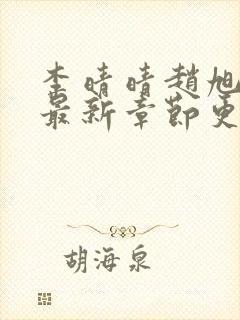 李晴晴趙旭
最新章節更
胡海泉